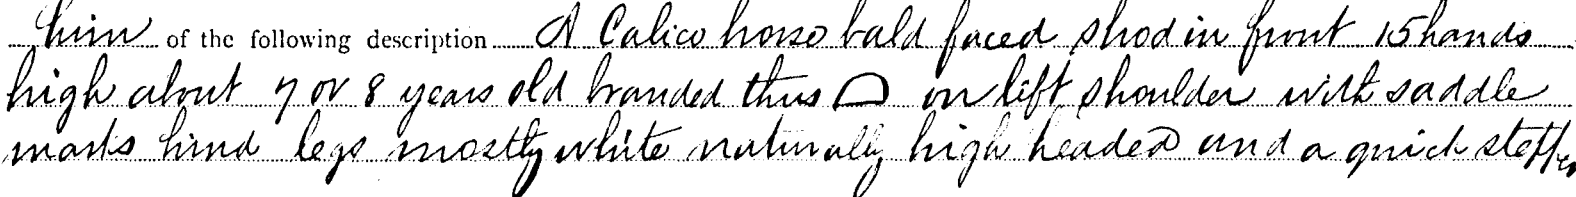 him of the following description A Calico horse bald faced shod in front 15 hands
high about 7 or 8 years old branded thus on left shoulder with saddle
marks hind legs mostly white naturally high headed and a quick stepper